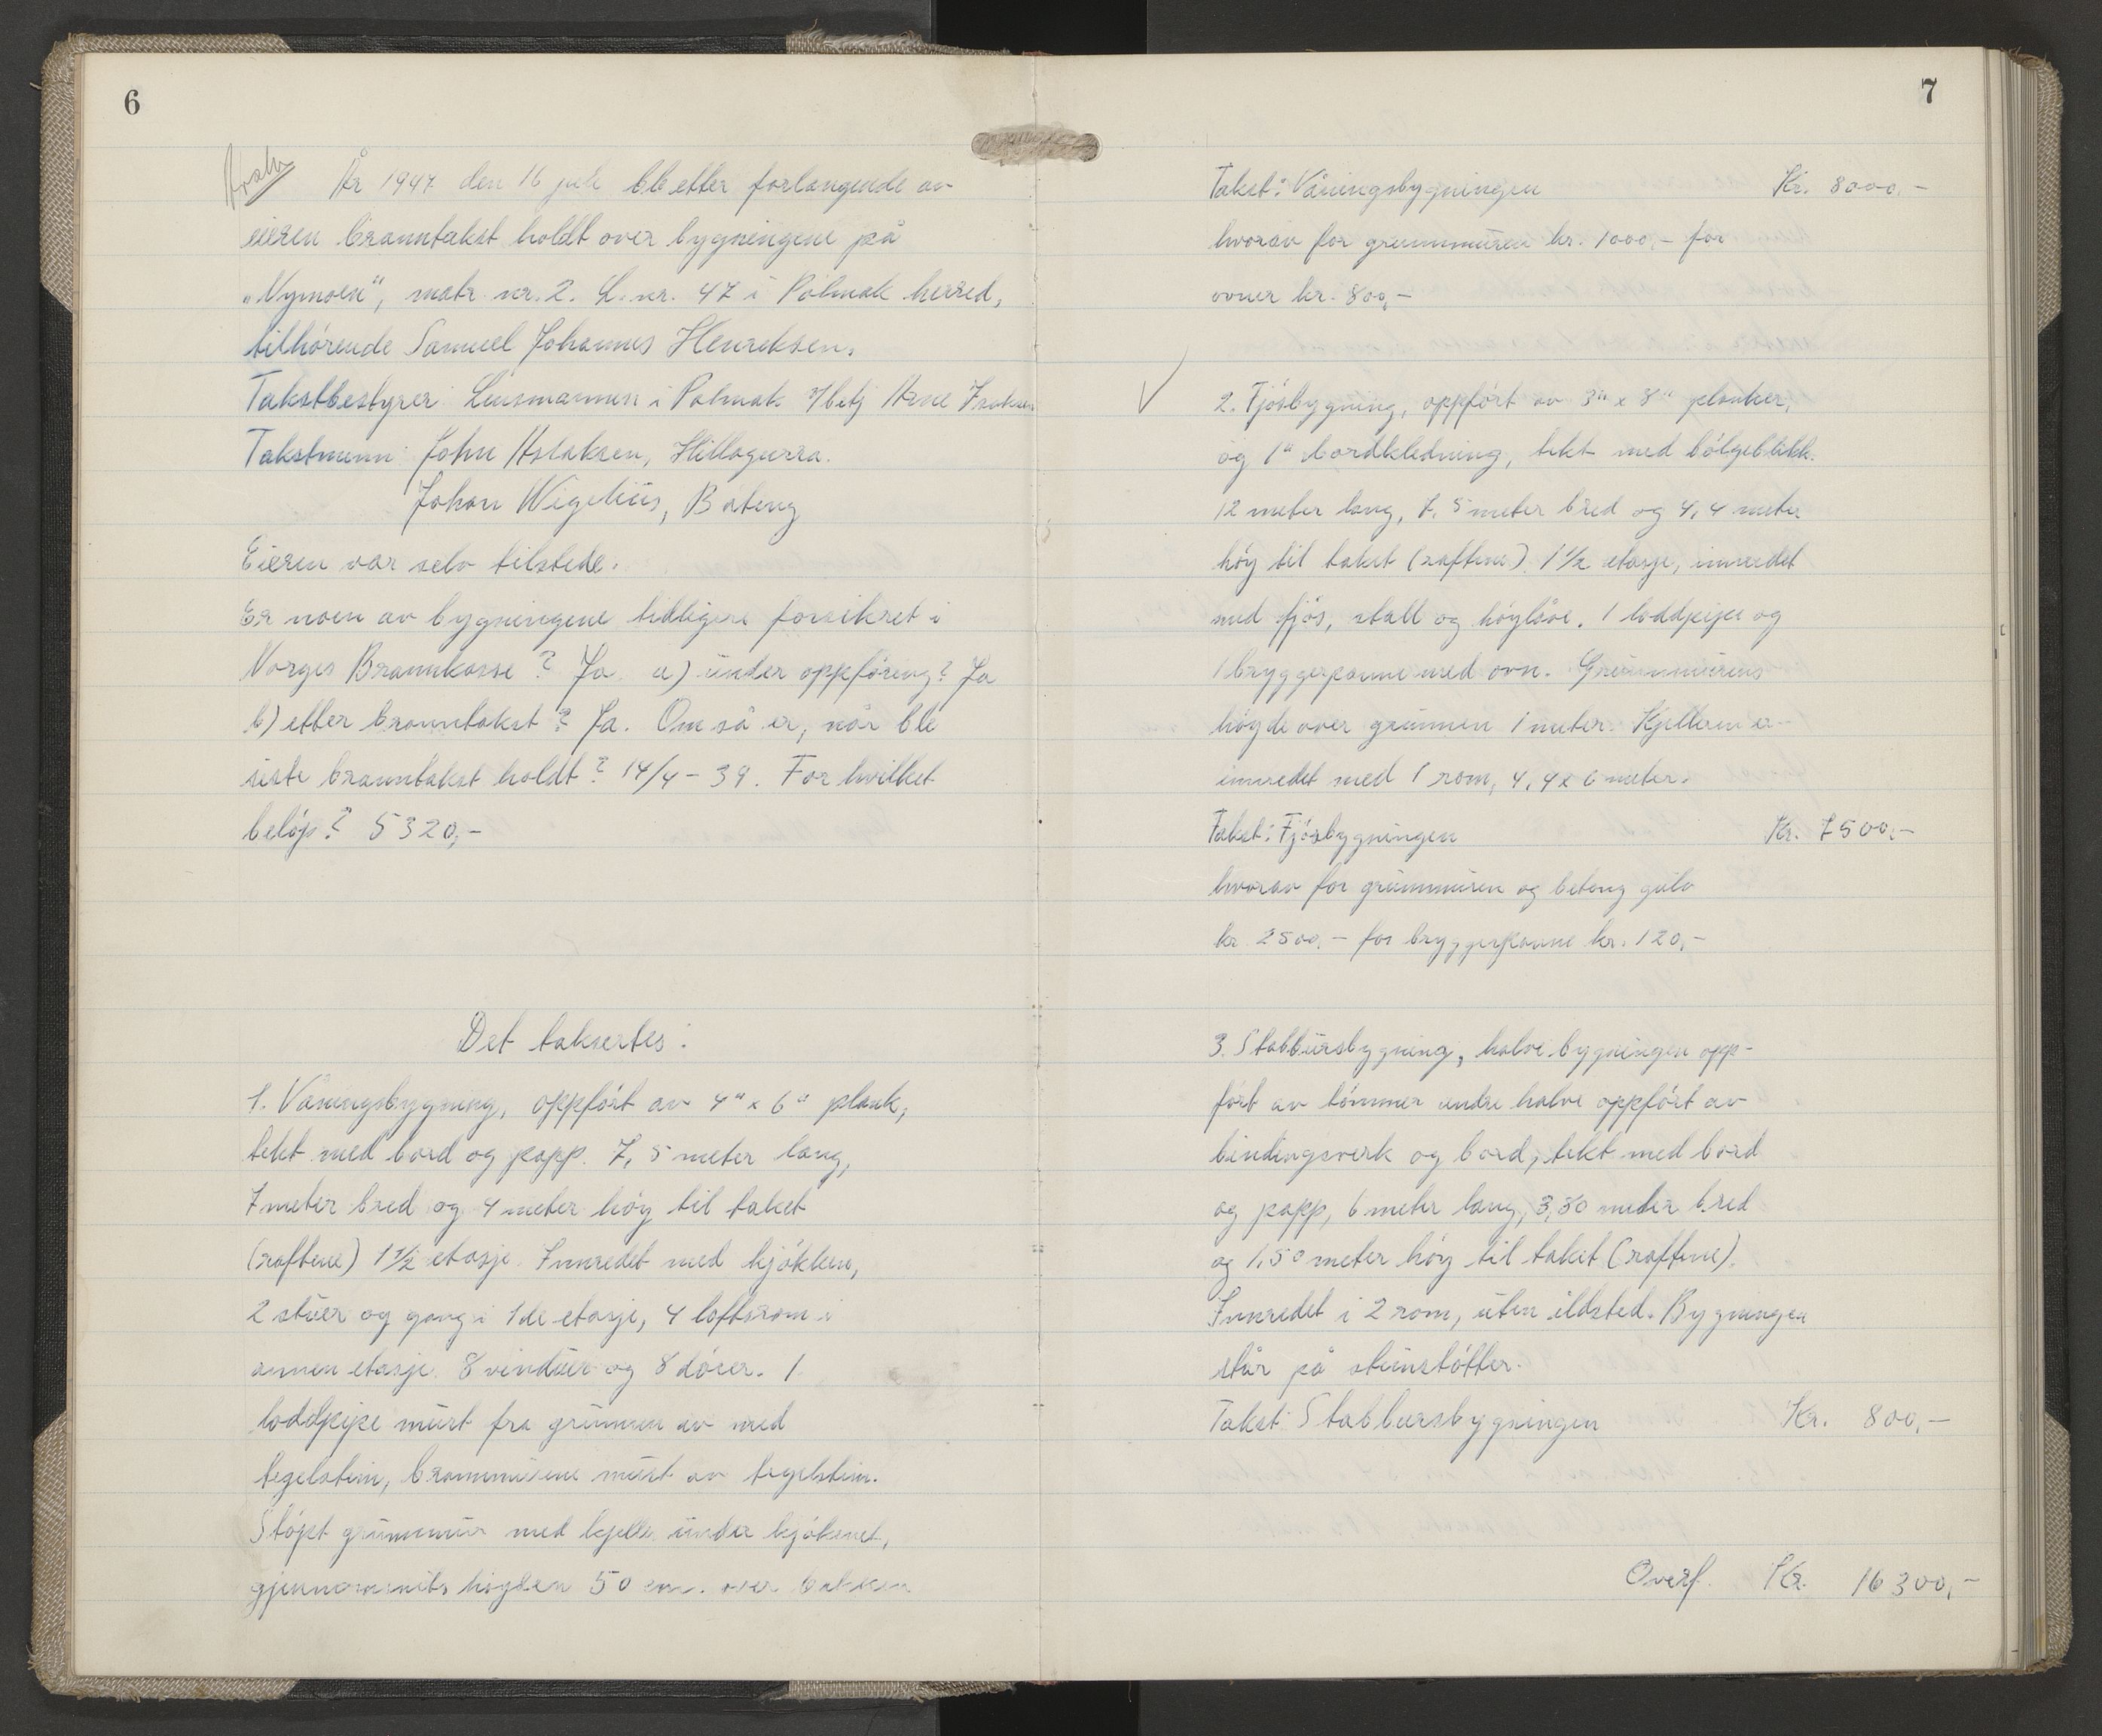 6
År 1947 den 16 juli ble etter forlangende av
eieren branntakst holdt over bygningene på
„Nymoen“, matr. nr. 2. L. nr. 47 i Polmak herred,
tilhørende Samuel Johannes Henriksen.
Takstbestyrer: Lensmannen i Polmak v/betj Arne
Takstmenn: John Aslaksen, Hillagurra.
Johan Wigelius, Båteng
Eieren var selv tilstede.
Er noen av bygningene tidligere forsikret i
Norges Brannkasse? Ja. a) under oppføring? Ja
b) etter branntakst? Ja. Om så er, når ble
siste branntakst holdt? 14/4 - 39. For hvilket
beløp? 5320,-
Det taksertes:
1. Våningsbygning, oppført av 4" x 6" plank,
tekt med bord og papp. 7,5 meter lang,
7 meter bred og 4 meter høy til taket
(raftene) 1 1/2 etasje. Innredet med kjøkken,
2 stuer og gang i 1de etasje, 4 loftsrom i
annen etasje. 8 vinduer og 8 dører. 1
loddpipe murt fra grunnen av med
tegelstein, brannmurene murt av tegelstein.
Støpt grunnmur med kjeller under kjøkenet,
gjennomsnits høyden 50 cm. over bakken
7
Takst: Våningsbygningen Kr. 8000,-
hvorav for grunnmuren kr. 1000,- for
ovner kr. 800,-
2. Fjøsbygning, oppført av 3" x 8" planker,
og 1" bordkledning, tekt med bølgeblikk.
12 meter lang, 7,5 meter bred og 4,4 meter
høy til taket (raftene) 1 1/2 etasje, innredet
med fjøs, stall og høyløe. 1 loddpipe og
1 bryggerpanne med ovn. Grunnmurens
høyde over grunnen 1 meter. Kjelleren er
innredet med 1 rom, 4,4 x 6 meter.
Takst: Fjøsbygningen Kr. 7500,-
hvorav for grunnmuren og betong gulv
kr. 2500,- for bryggerpanne kr. 120,-
3. Stabbursbygning, halve bygningen opp-
ført av tømmer andre halve oppført av
bindingsverk og bord, tekt med bord
og papp, 6 meter lang, 3,80 meter bred
og 1,50 meter høy til taket (raftene).
Innredet i 2 rom, uten ildsted. Bygningen
står på steinstøtter.
Takst: Stabbursbygningen Kr. 800,-
Overf. Kr. 16300,-